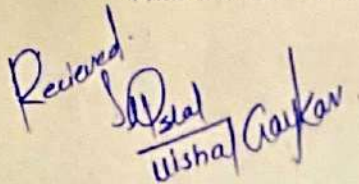 Recieved.
Vishal Gaykar